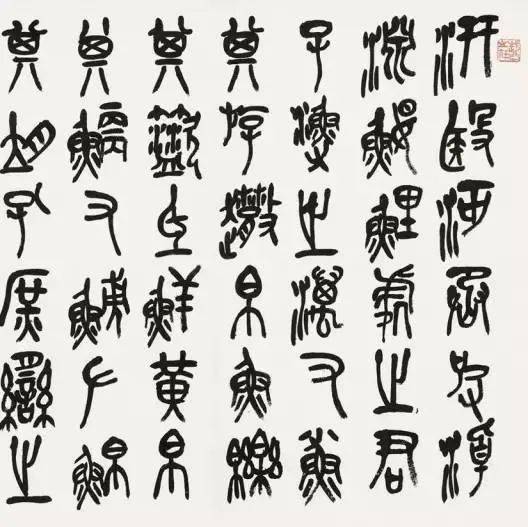 汧殹沔丞彼淖
淵鰋鯉處之君
子漁之澫又小魚
其斿帛魚皪
其氐鮮黃帛
其鯾又鮊
其孔庶臠之